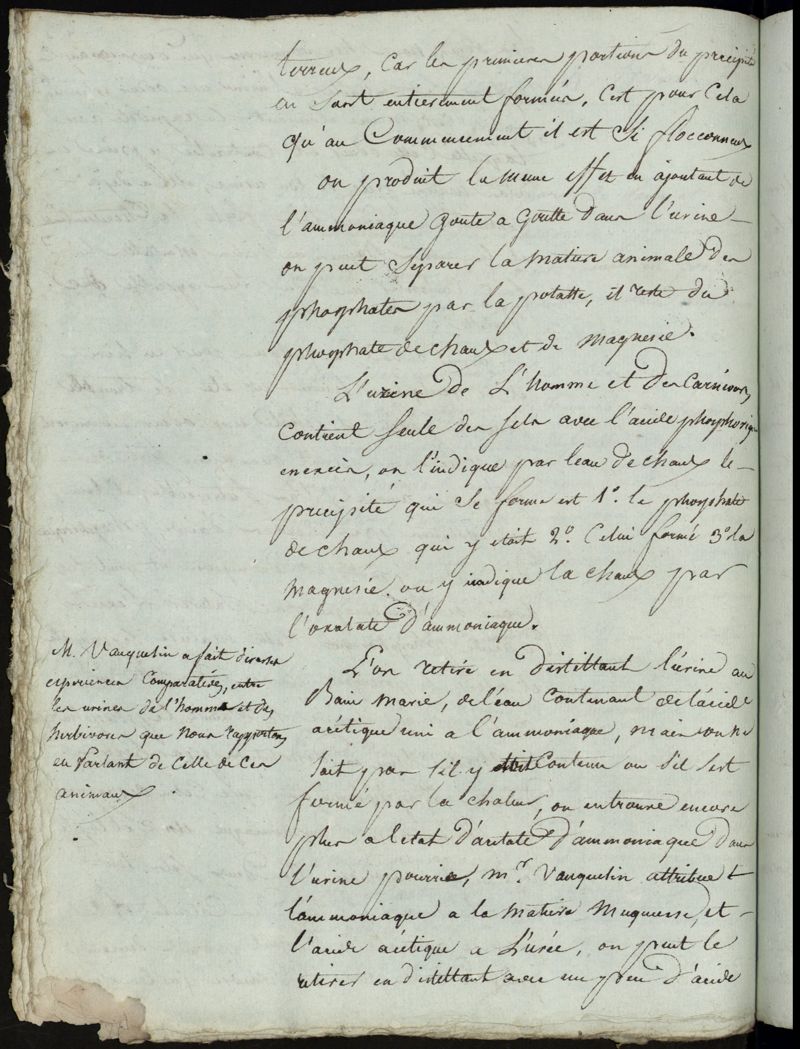 terreux, Car les premieres portions du precipité
en sont entierement formés, C'est pour Cela
qu'au Commencement il est Si floconneux
on produit le meme effet en ajoutant de
l'ammoniaque goute a goutte dans l'urine —
on peut Separer la matiere animale des
phosphates par la potasse, il reste du
phosphate de chaux et de magnesie.
L'urine de L'homme et des Carnivores,
Contient Seule des sels avec l'acide phosphorique
en excès, on l'indique par leau de chaux le —
precipité qui se forme est 1°. le phosphate
de chaux qui y etait 2°. Celui formé 3° la
magnesie. on y indique la chaux par
l'oxalate d'ammoniaque.
M. Vauquelin a fait diverses
experiences Comparatives, entre
les urines de l'homme et des
herbivores que nous rapportons,
en Parlant de Celle de Ces
animaux
L'on retire en distillant l'urine au
Bain marie, de l'eau Contenant de l'acide
acétique uni a l'ammoniaque, mais on ne
sait pas s'il y etait Contenu ou S'il s'est
formé par la chaleur, on en trouve encore
plus a l'etat d'acetate d'ammoniaque dans
l'urine pourrie, mr. Vauquelin attribue
l'ammoniaque a la matiere muqueuse, et —
l'acide acétique a L'urée, on peut le
retirer en distillant avec un peu d'acide